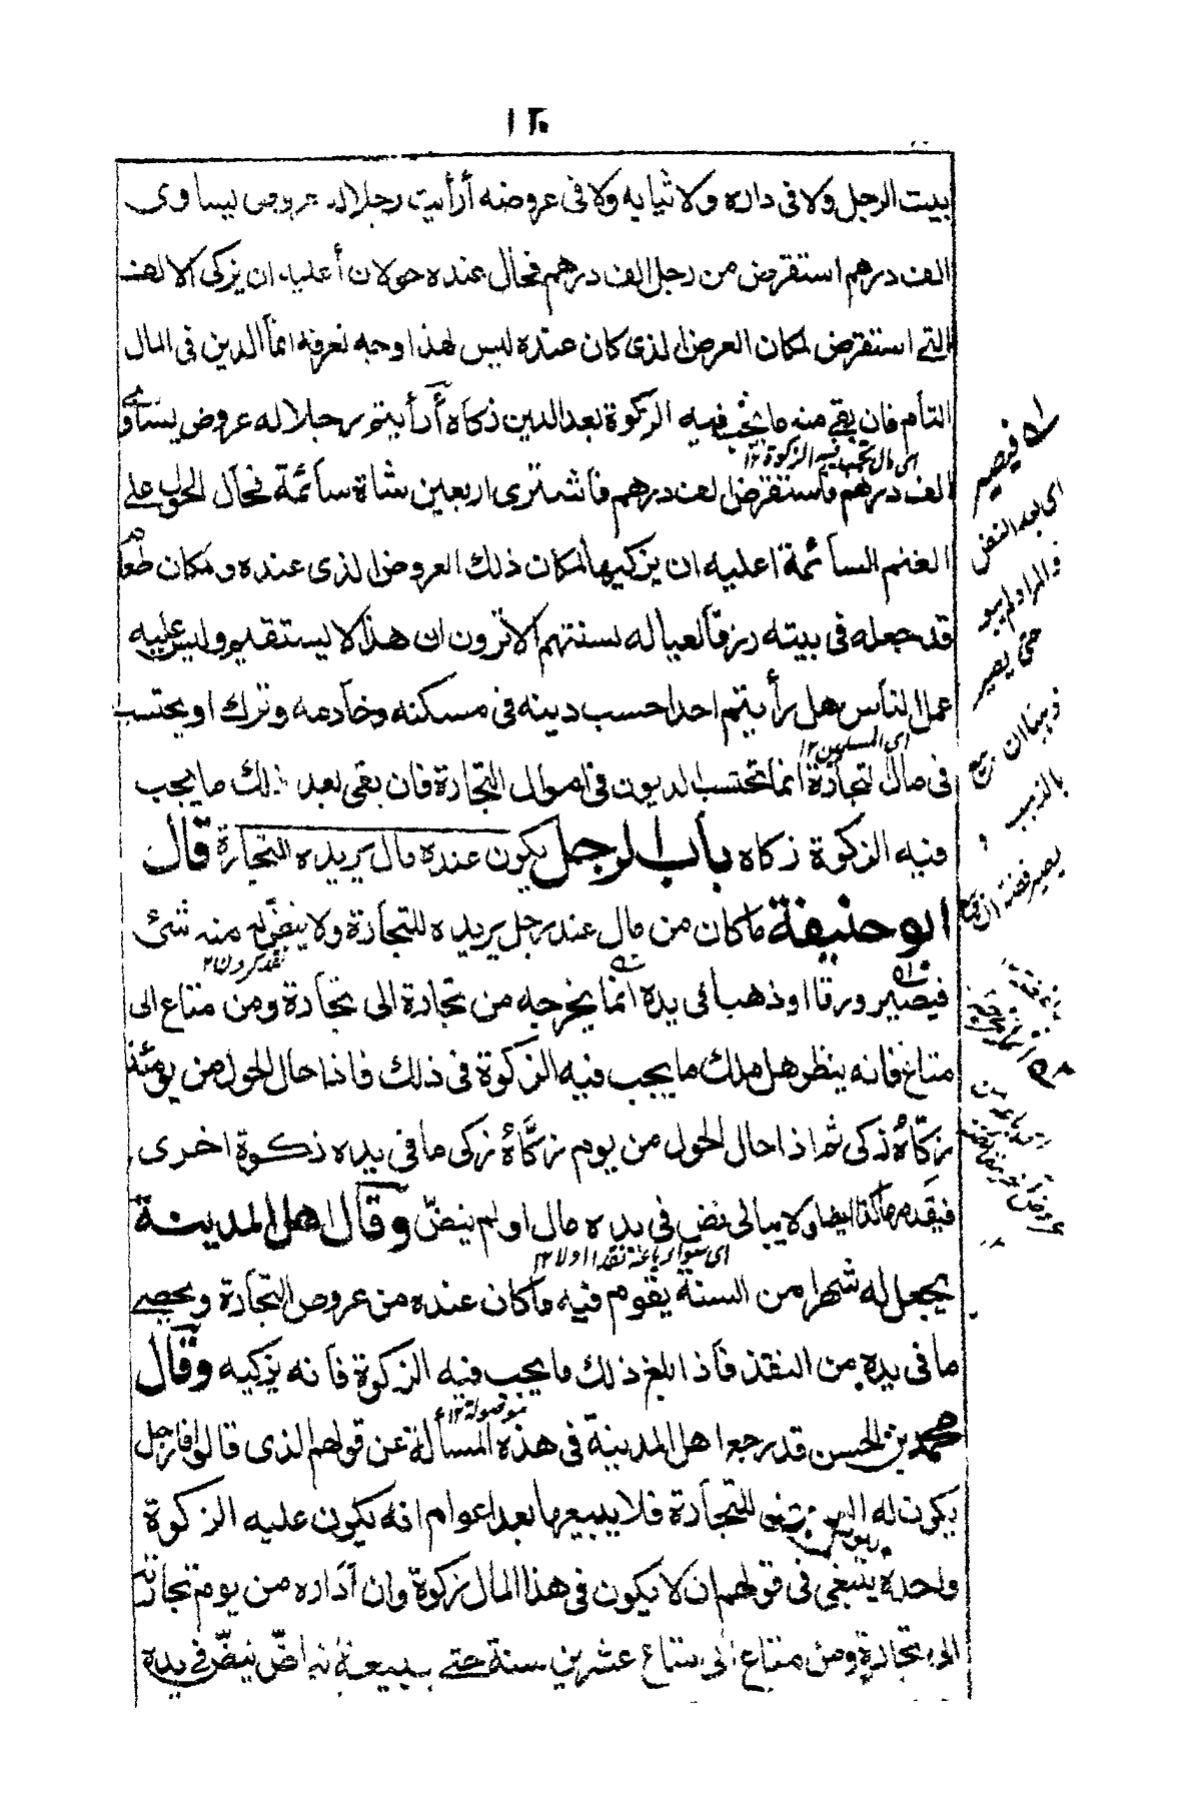 ١٢٠
بيت الرجل ولا فى داره ولا ثيابه ولا فى عروضه أرأيت رجلا له عروض يساوى
الف درهم استقرض من رجل الف درهم فحال عنده حولان أعليه ان يزكى الالف
التى استقرض لمكان العرض الذى كان عنده ليس لهذا وجه نعرفه انما الدين فى المال
التام فان بقى منه ما يجب فيه الزكوة بعد الدين زكاه أرأيتم رجلا له عروض يساوى
اى مال تجب فيه الزكوة ١٢
الف درهم فاستقرض الف درهم فاشترى اربعين شاة سائمة فحال الحول على
الغنم السائمة اعليه ان يزكيها لمكان ذلك العروض الذى عنده ومكان طعام
قد جعله فى بيته رزقا لعياله لسنتهم الا ترون ان هذا لا يستقيم وليس عليه
عمل الناس هل رأيتم احدا حسب دينه فى مسكنه وخادمه وترك او يحتسب
اى المسلمين ١٢
فى مال التجارة انما تحتسب الديون فى اموال التجارة فان بقى بعد ذلك ما يجب
فيه الزكوة زكاه باب الرجل يكون عنده مال يريده للتجارة قال
ابو حنيفة ما كان من مال عند رجل يريده للتجارة ولا ينض له منه شئ
فيصير ورقا او ذهبا فى يده انما يخرجه من تجارة الى تجارة ومن متاع الى
متاع فانه ينظر هل ملك ما يجب فيه الزكوة فى ذلك فاذا حال الحول من يومئذ
زكّاه زكى ثم اذا حال الحول من يوم زكّاه زكى ما فى يده زكوة اخرى
فيقدمها كذا ايضا ولا يبالى نض فى يده مال او لم ينضّ وقال اهل المدينة
اى سواء باعه نقدا اولا ١٢
يجعل له شهرا من السنة يقوم فيه ما كان عنده من عروض التجارة ويحصى
ما فى يده من النقد فاذا بلغ ذلك ما يجب فيه الزكوة فانه يزكيه وقال
محمد بن الحسن قد رجع اهل المدينة فى هذه المسألة عن قولهم الذى قالوا فى رجل
يكون له للتجارة فلا يبيعها بعد اعوام انه يكون عليه الزكوة
واحدة ينبغى فى قولهم ان لا يكون فى هذا المال زكوة وان أداره من يوم تجارته
الى تجارة ومن متاع الى متاع عشرين سنة حتى يبيعه نضّ فى يده
ل٥ فيصير
اى بعد النض
والمراد لم يبع
حتى يصير
ذهبا ان بيع
بالذهب و
يصير فضة ان بيع